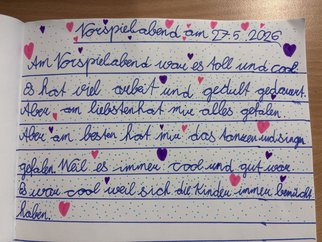 Vorspielabend am 27.5.2026
Am Vorspielabend war es toll und cool
Es hat viel arbeit und gedult gedauert.
Aber am liebsten hat mir alles gefalen.
Aber am besten hat mir das tanzen und singen
gefalen. Weil es immer cool und gut war.
Es war cool weil sich die Kinder immer bemüht
haben.